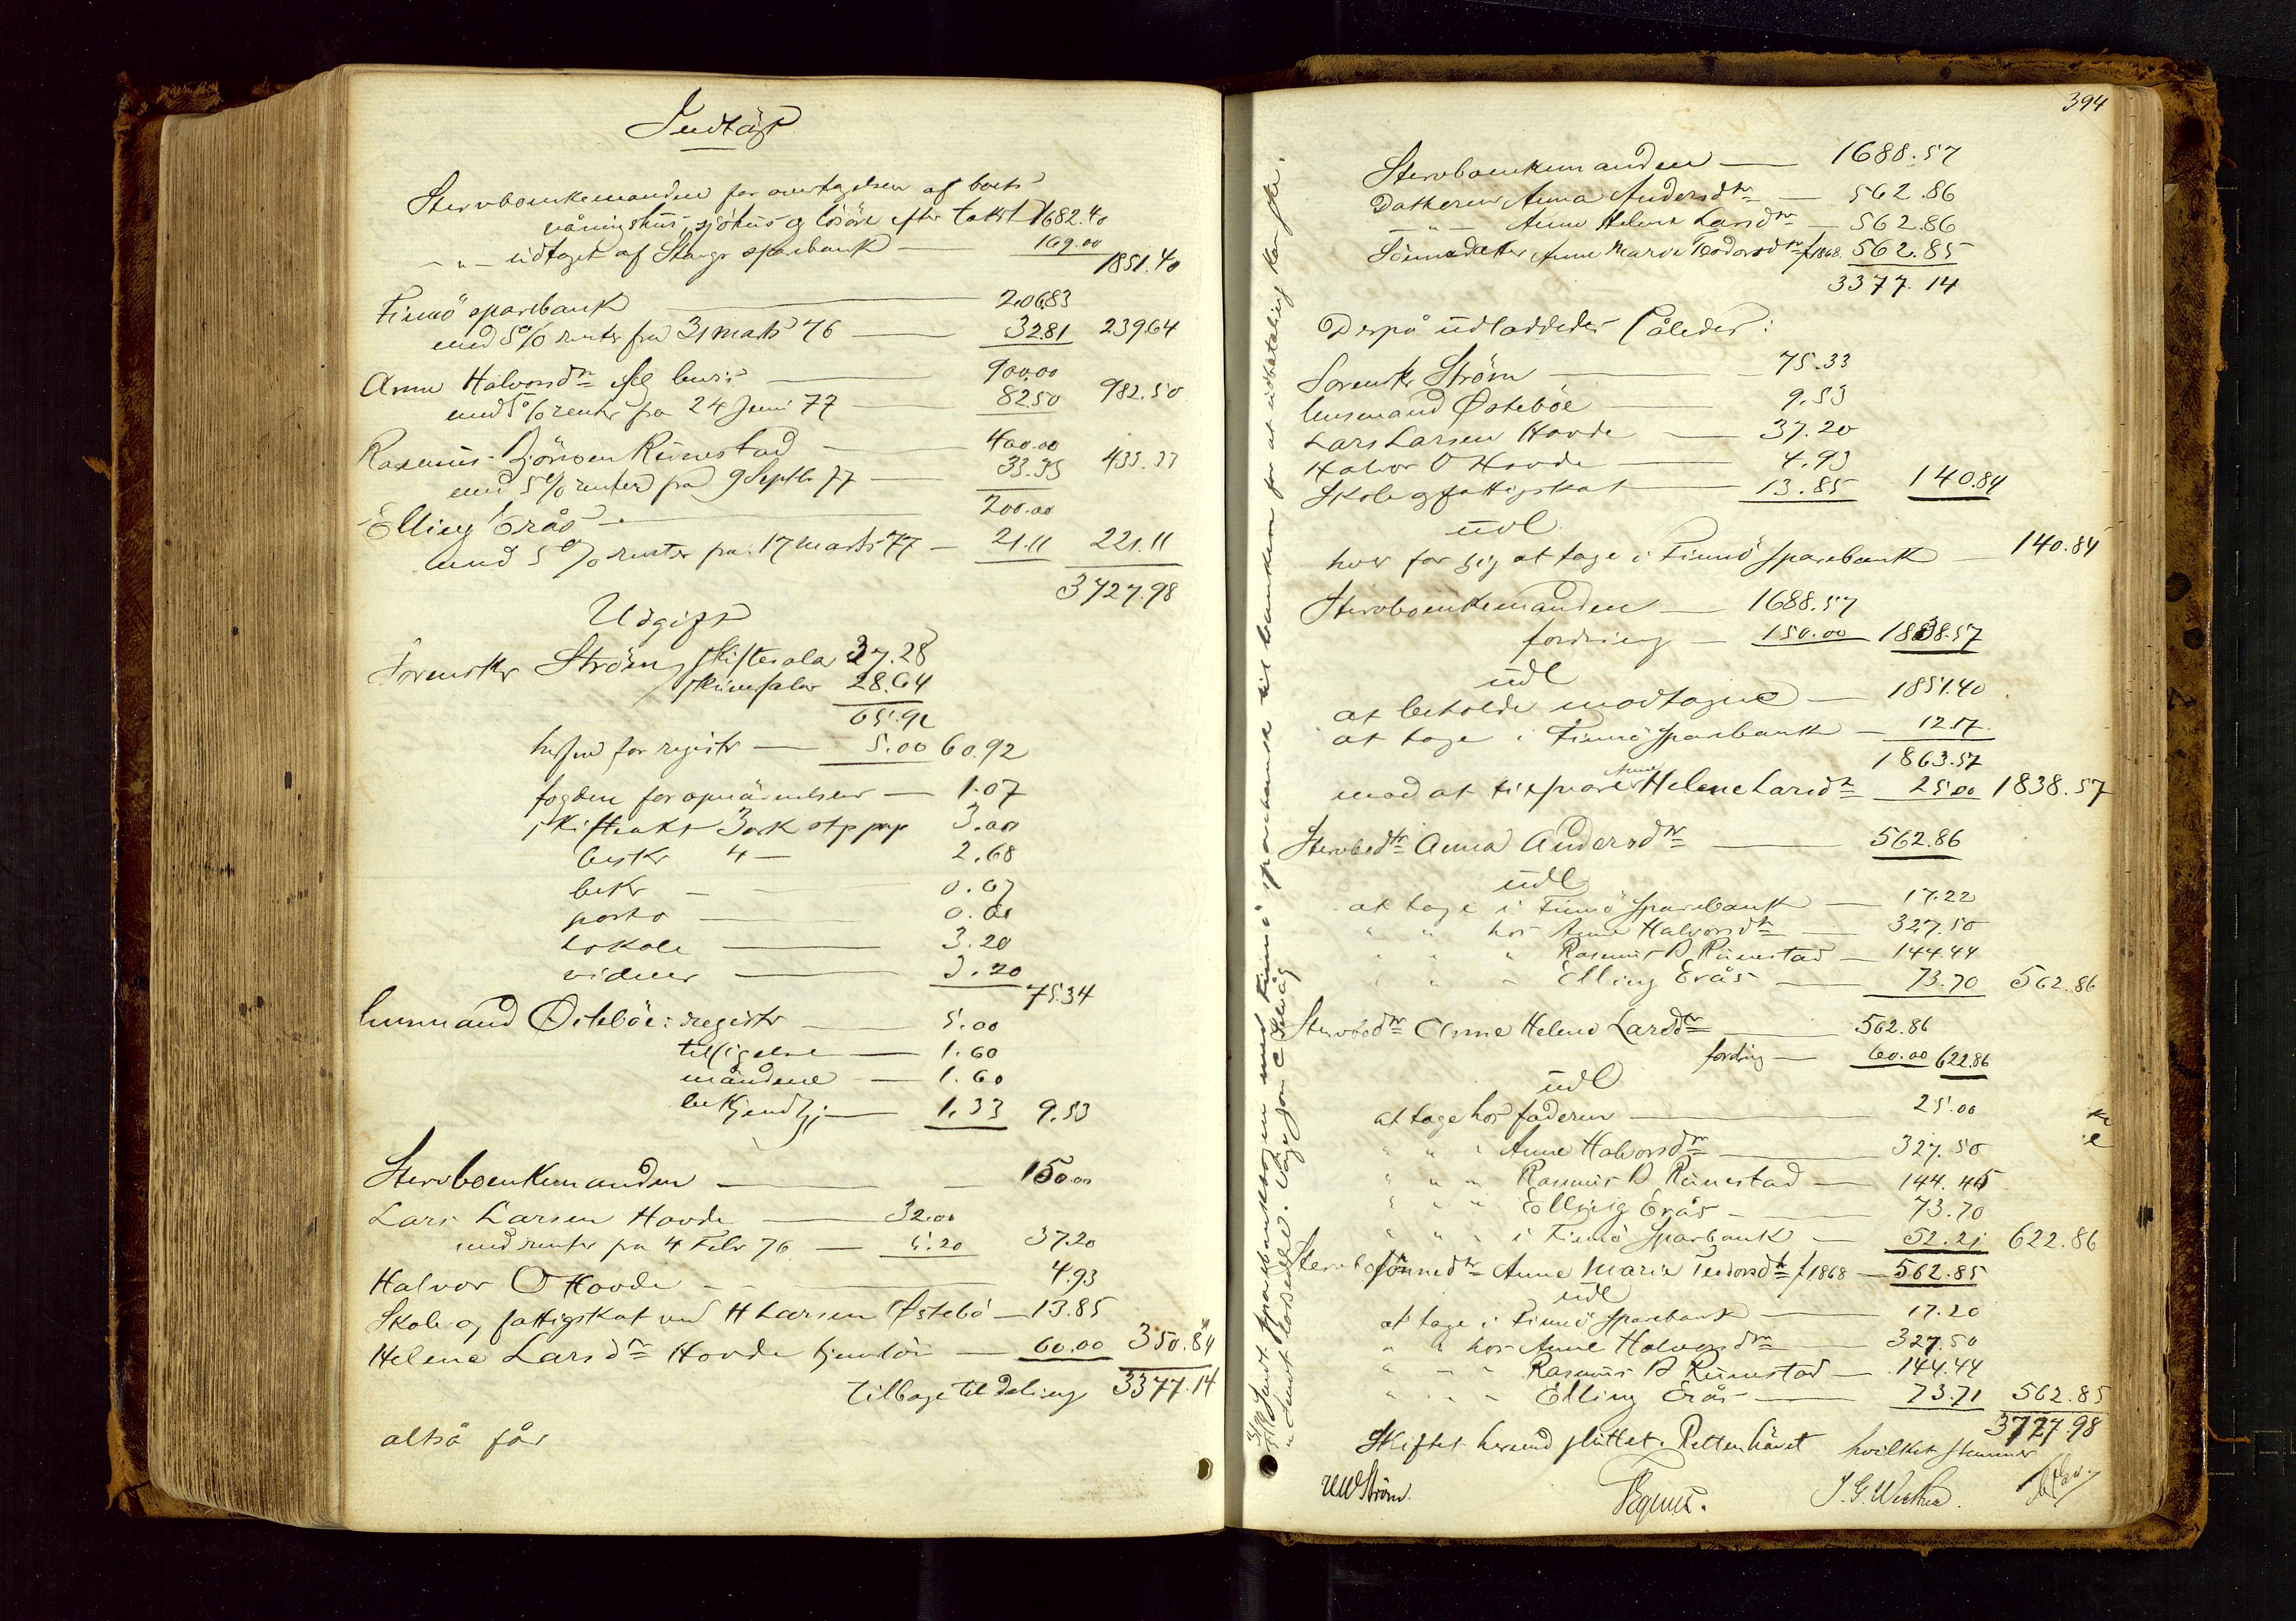 Indtægt
Stervboenkemanden for overtagelsen af boets
våningshus, sjöhus og lösöre efter takst 1682.40
— " — udtaget af Stavgr sparebank — 169.00
1851.40
Finnö sparebank — 206.83
med 5% renter fra 31 marts 76 — 32.81 239.64
Anne Halvorsdr — 900.00
med 5% renter fra 24 Juni 77 — 82.50 982.50
Rasmus Rimestad — 400.00
med 5% renter fra 9 Septbr 77 — 33.33 433.33
Elling Erås — 200.00
med 5% renter fra 17 marts 77 — 21.11 221.11
3727.98
Udgift
Sorenskr Ström, skiftesala 37.28
28.64
65.92
for registr — 5.00 60.92
fogden for — 1.07
skifteakt 3 ark stp pap 3.00
beskr 4 — 2.68
bekr — 0.67
porto — 0.60
lokale — 3.20
vidner — 3.20
75.34
lensmand Östeböe: registr — 5.00
tilsigelse — 1.60
mændene — 1.60
bekjendtgj — 1.33 9.53
Stervboenkemanden — 150.00
Lars Larsen Hovde — 32.00
med renter fra 4 Febr 76 — 5.20 37.20
Halvor O Hovde — 4.93
Skole og fattigskat ved H Larsen Östebö — 13.85
Helene Larsdr Hovde tjenelön — 60.00 350.84
tilbage til deling 3377.14
altså får
394
Stervboenkemanden — 1688.57
Datteren Anna Andersdr — 562.86
— " — Anne Helene Larsdr — 562.86
Sönnedatter Anne Marie Teodorsdr f 1868. 562.85
3377.14
Derpå udladdedes således:
Sorenskr Ström — 75.33
lensmand Östeböe — 9.53
Lars Larsen Hovde — 37.20
Halvor O Hovde — 4.93
Skole og fattigskat — 13.85 140.84
udl
hver for sig at tage i Finnö sparebank — 140.84
Stervboenkemanden — 1688.57
fordring — 150.00 1838.57
udl
at beholde modtagne — 1851.40
at tage i Finnö sparebank — 12.17
1863.57
mod at tilsvare Anne Helene Larsdr 25.00 1838.57
Stervbodtr Anna Andersdr — 562.86
udl
at tage i Finnö sparebank — 17.22
" " hos Anne Halvorsdr — 327.50
" " " Rasmus D Rimestad — 144.44
" " " Elling Erås — 73.70 562.86
Stervbodtr Anne Helene Larsdr — 562.86
fordring — 60.00 622.86
udl
at tage hos faderen — 25.00
" " " Anne Halvorsdr — 327.50
" " " Rasmus D Rimestad — 144.45
" " " Elling Erås — 73.70
" " " i Finnö sparebank — 52.21 622.86
Stervbosönnedtr Anne Marie Teodorsdr f 1868 — 562.85
udl
at tage i Finnö sparebank — 17.20
" " hos Anne Halvorsdr — 327.50
" " " Rasmus D Rimestad — 144.44
" " " Elling Erås — 73.71 562.85
3727.98
Skiftet hermed sluttet. Retten hævet hvilket stemmer
Ström. J. G. Wicher.
Sendt sparebankbogen med Finnö sparebank til banken for at udbetaling kan ske.